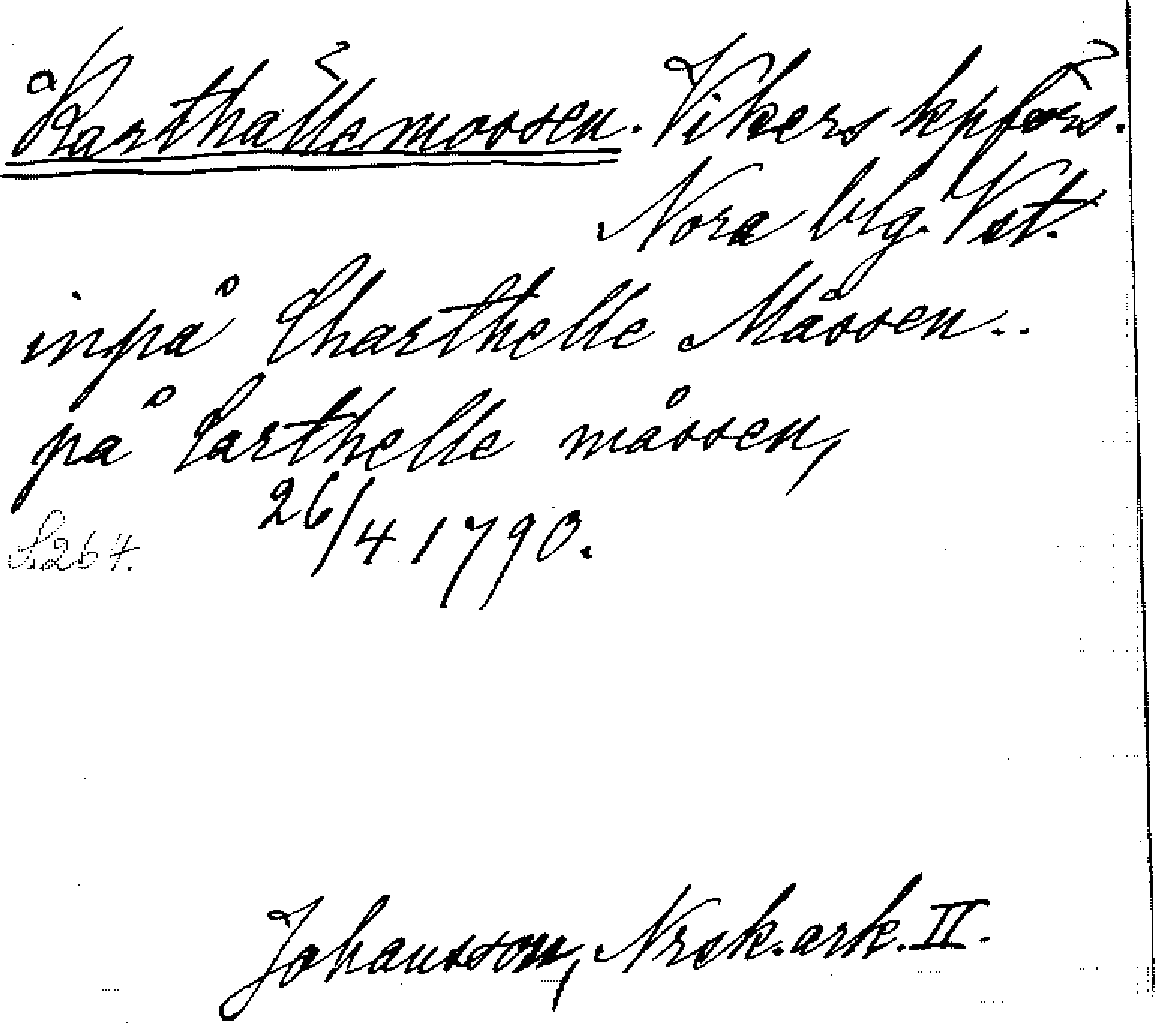 Karthällemossen. Vikers kpförs.
Nora blg. Vst.
inpå Charthelle Måssen..
på Carthelle måssen,
26/4 1790.
S. 267.
Johansson, Nrsk. ark. II.